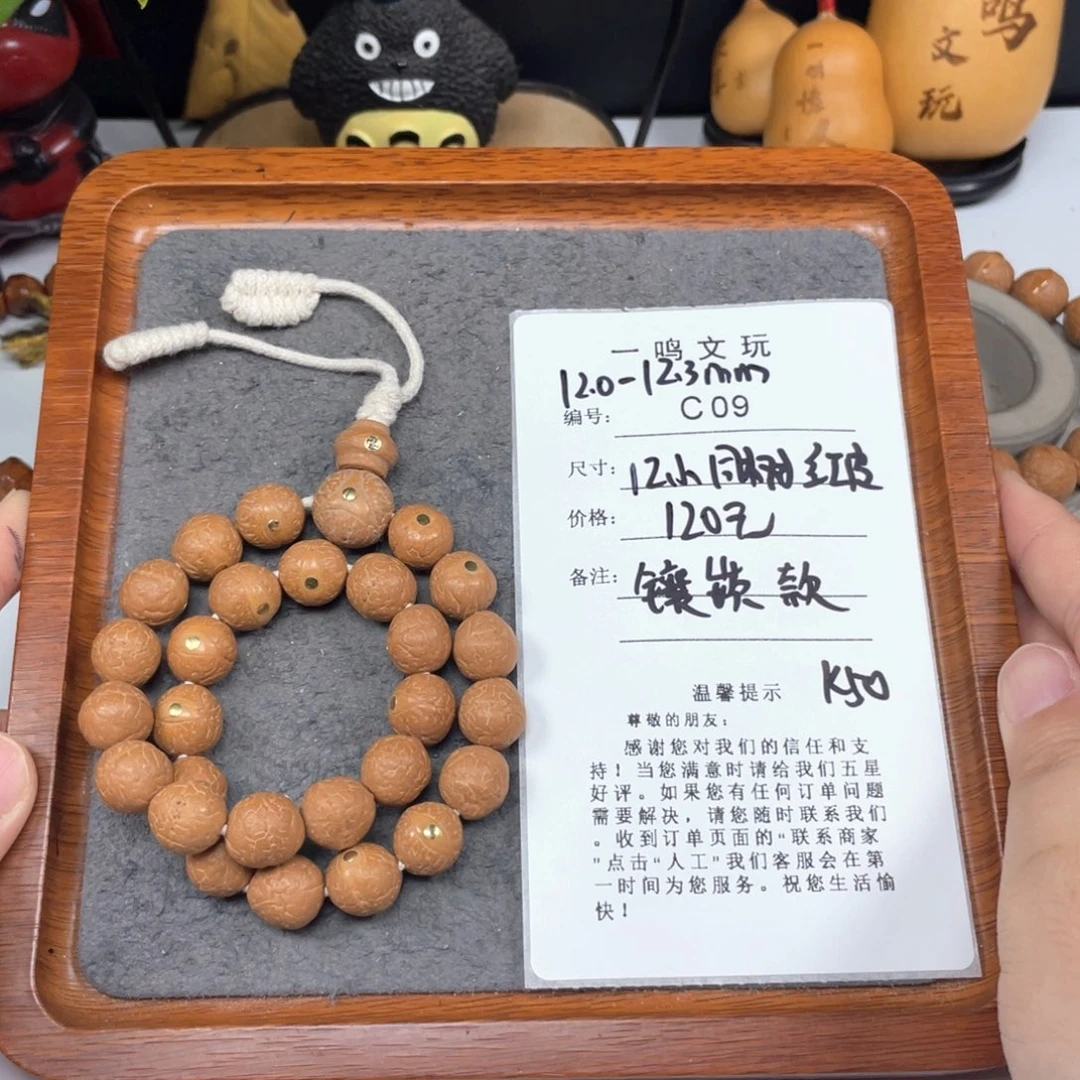 鸣
文
玩
一鸣文玩
12.0-12.3mm
编号: C09
尺寸: 12m 同树 红皮
价格: 120元
备注: 镶嵌款
K50
温馨提示
尊敬的朋友:
感谢您对我们的信任和支
持!当您满意时请给我们五星
好评。如果您有任何订单问题
需要解决,请您随时联系我们
。收到订单页面的"联系商家
"点击"人工"我们客服会在第
一时间为您服务。祝您生活愉
快!